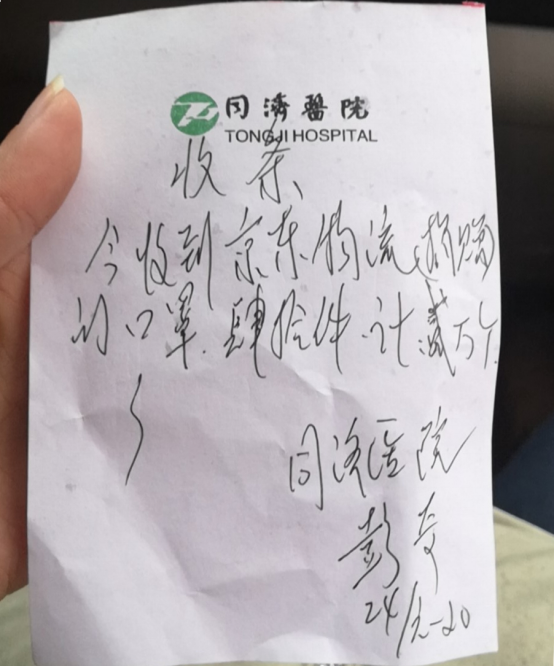 同濟醫院
TONGJI HOSPITAL
收条
今收到京东物流捐赠
的口罩.肆拾件.计贰万个.
同济医院
彭
24/元-20